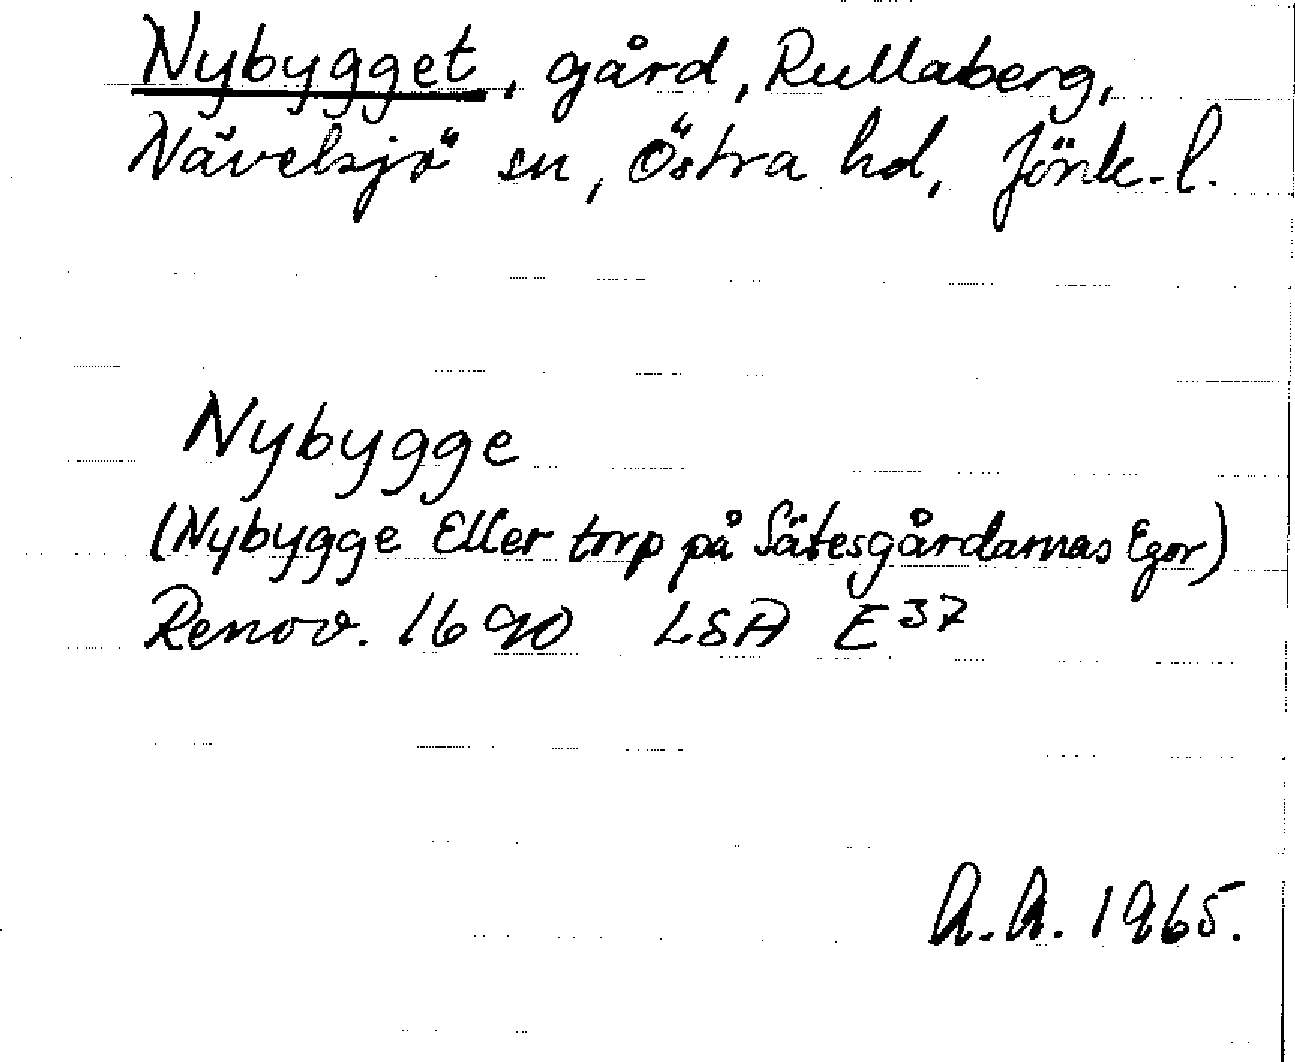 Nybygget, gård, Rullaberg,
Nävelsjö sn, Östra hd, Jönk. l.
Nybygge
(Nybygge Eller torp på Sätesgårdarnas Egor)
Renov. 1690 LSA E37
A.A. 1965.